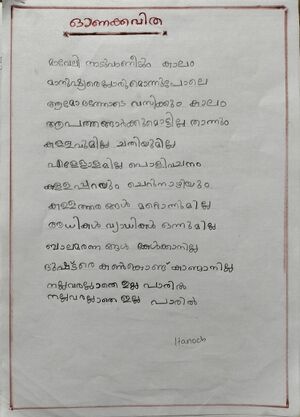 ഓണക്കവിത
മാവേലി നാടുവാണീടും കാലം
മാനുഷ്യരെല്ലാരുമൊന്നുപോലെ
ആമോദത്തോടെ വസിക്കും കാലം
ആപത്തങ്ങാർക്കുമൊട്ടില്ല താനും
കള്ളവുമില്ല ചതിയുമില്ല
എള്ളോളമില്ല പൊളിവചനം
കള്ളപ്പറയും ചെറുനാഴിയും
കള്ളത്തരങ്ങൾ മറ്റൊന്നുമില്ല
ആധികൾ വ്യാധികൾ ഒന്നുമില്ല
ബാലമരണങ്ങൾ കേൾക്കാനില്ല
ദുഷ്ടരെ കൺകൊണ്ട് കാണ്മാനില്ല
നല്ലവരല്ലാതെ ഇല്ല പാരിൽ
നല്ലവരല്ലാതെ ഇല്ല പാരിൽ
Hanock